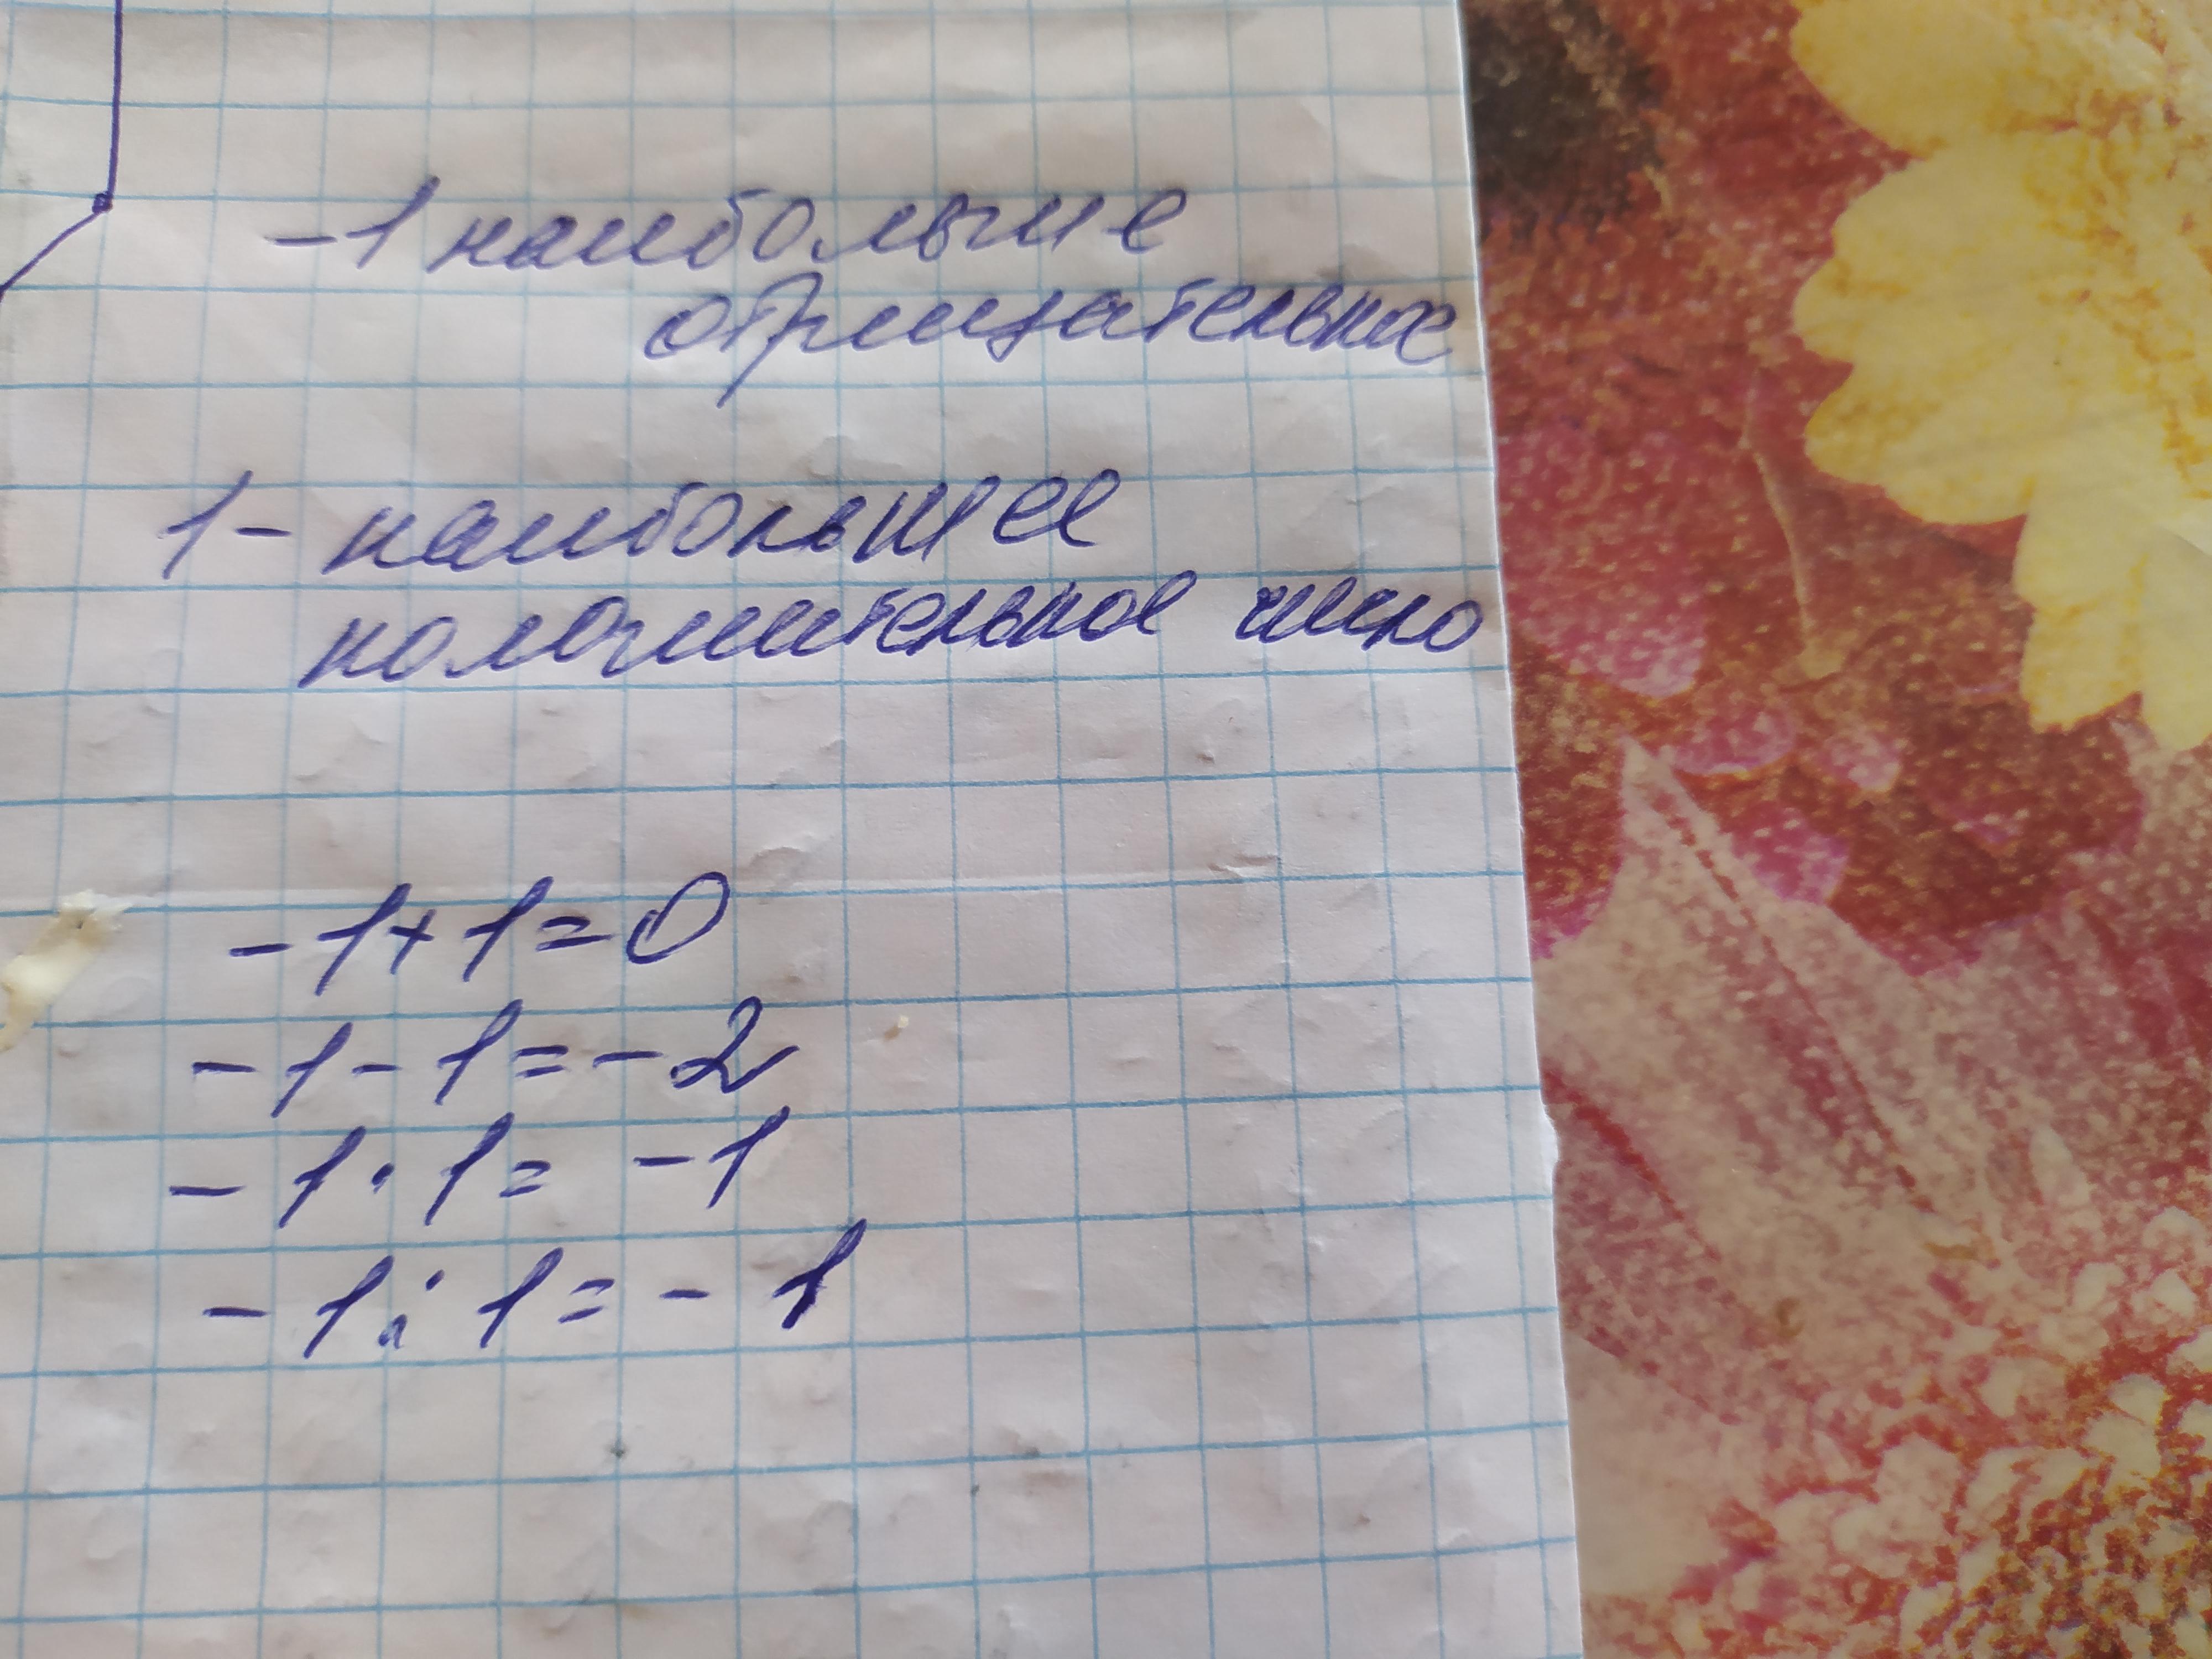 -1 наибольше
отрицательное
1- наибольшее
положительное число
-1+1=0
-1-1=-2
-1·1=-1
-1:1=-1